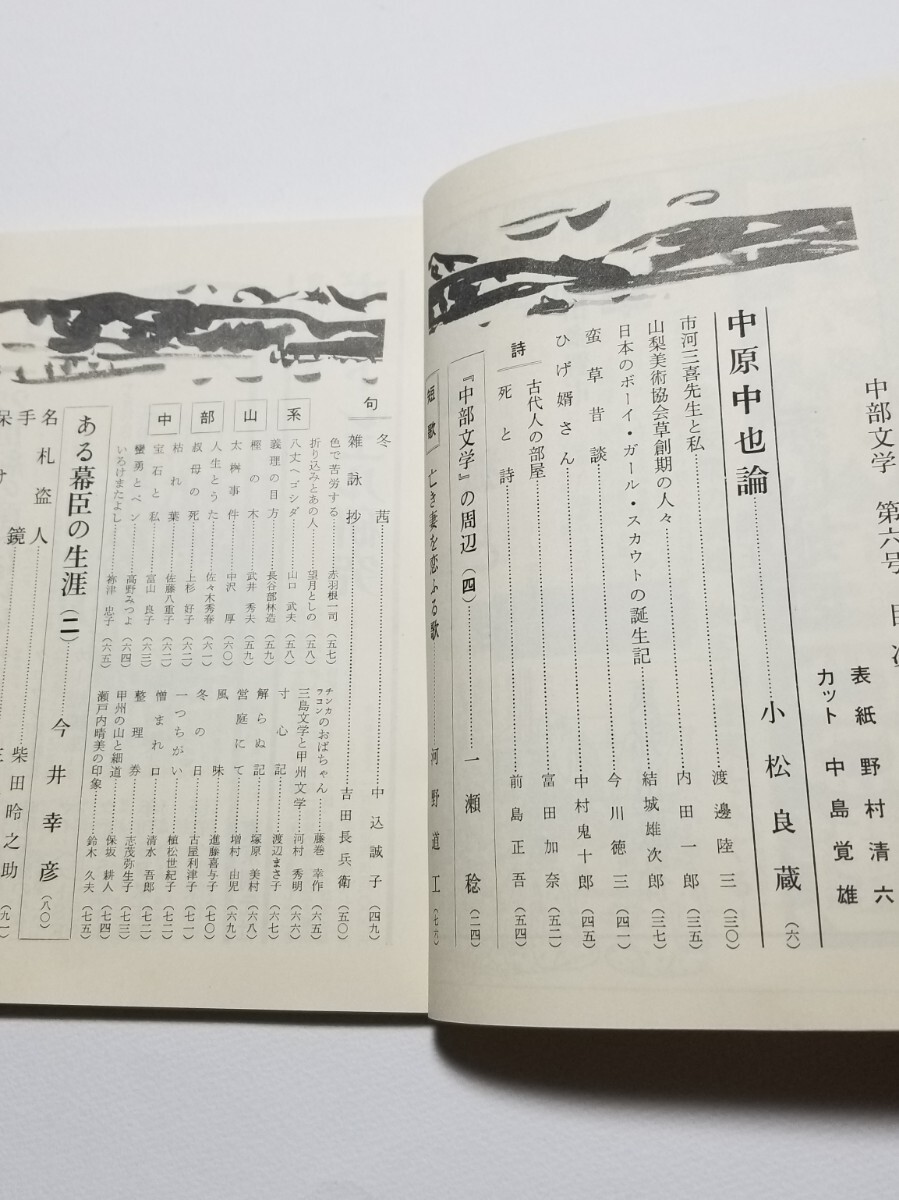 中部文学 第六号 目次
表紙 野村清六
カット 中島覚雄
中原中也論 小松良蔵 (六)
市河三喜先生と私 渡邊陸三 (三〇)
山梨美術協会草創期の人々 内田一郎 (三五)
日本のボーイ・ガール・スカウトの誕生記 結城雄次郎 (三七)
蛮草昔談 今川徳三 (四一)
ひげ婿さん 中村鬼十郎 (四五)
詩
古代人の部屋 富田加奈 (五二)
死と詩 前島正吾 (五四)
『中部文学』の周辺(四) 一瀬稔 (二四)
短歌 亡き妻を恋ふる歌 河野道工 (七六)
句
冬茜 中込誠子 (四九)
雑詠抄 吉田長兵衛 (五〇)
中部山系
色で苦労する 赤羽根一司 (五七)
折り込みとあの人 望月としの (五八)
八丈へゴシダ 山口武夫 (五八)
義理の目方 長谷部林造 (五九)
樫の木 武井秀夫 (五九)
太桝事件 中沢厚 (六〇)
人生とうた 佐々木秀春 (六一)
叔母の死 上杉好子 (六一)
枯れ葉 佐藤八重子 (六二)
宝石と私 富山良子 (六三)
蠻勇とペン 高野みつよ (六四)
いろけまたよし 祢津忠子 (六五)
チンカラコンのおばちゃん 藤巻幸作 (六五)
三島文学と甲州文学 河村秀明 (六六)
寸心記 渡辺まさ子 (六七)
解らぬ記 塚原美村 (六八)
営庭にて 増村由児 (六九)
風味 進藤喜与子 (七〇)
冬の日 古屋利津子 (七一)
一つちがい 植松世紀子 (七一)
憎まれ口 清水吾郎 (七二)
整理券 志茂弥生子 (七三)
甲州の山と細道 保坂耕人 (七四)
瀬戸内晴美の印象 鈴木久夫 (七五)
ある幕臣の生涯(二) 今井幸彦 (八〇)
名札盗人 柴田唅之助 (九一)
手鏡
呆け